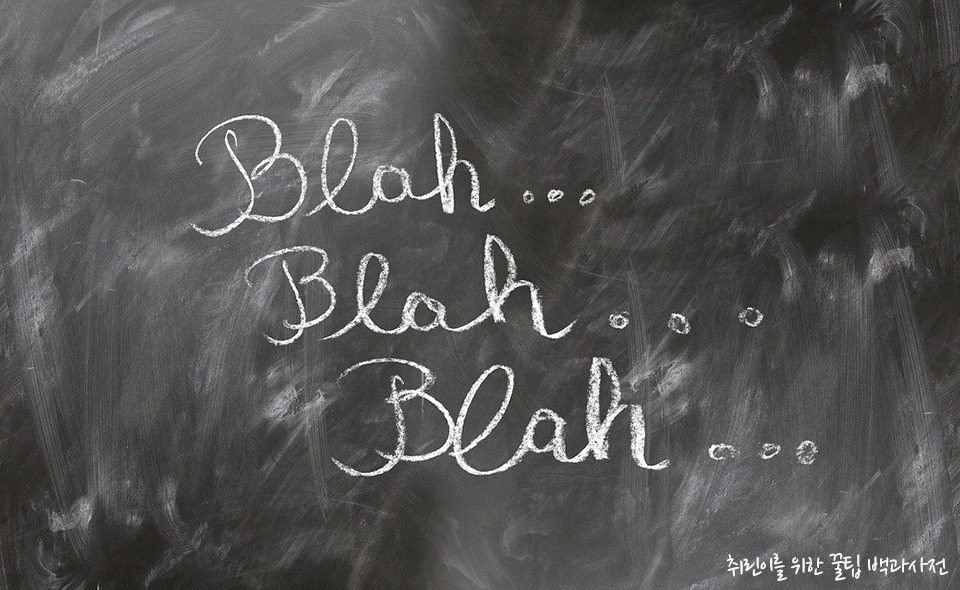 Blah...
Blah...
Blah...
취린이를 위한 꿀팁 백과사전